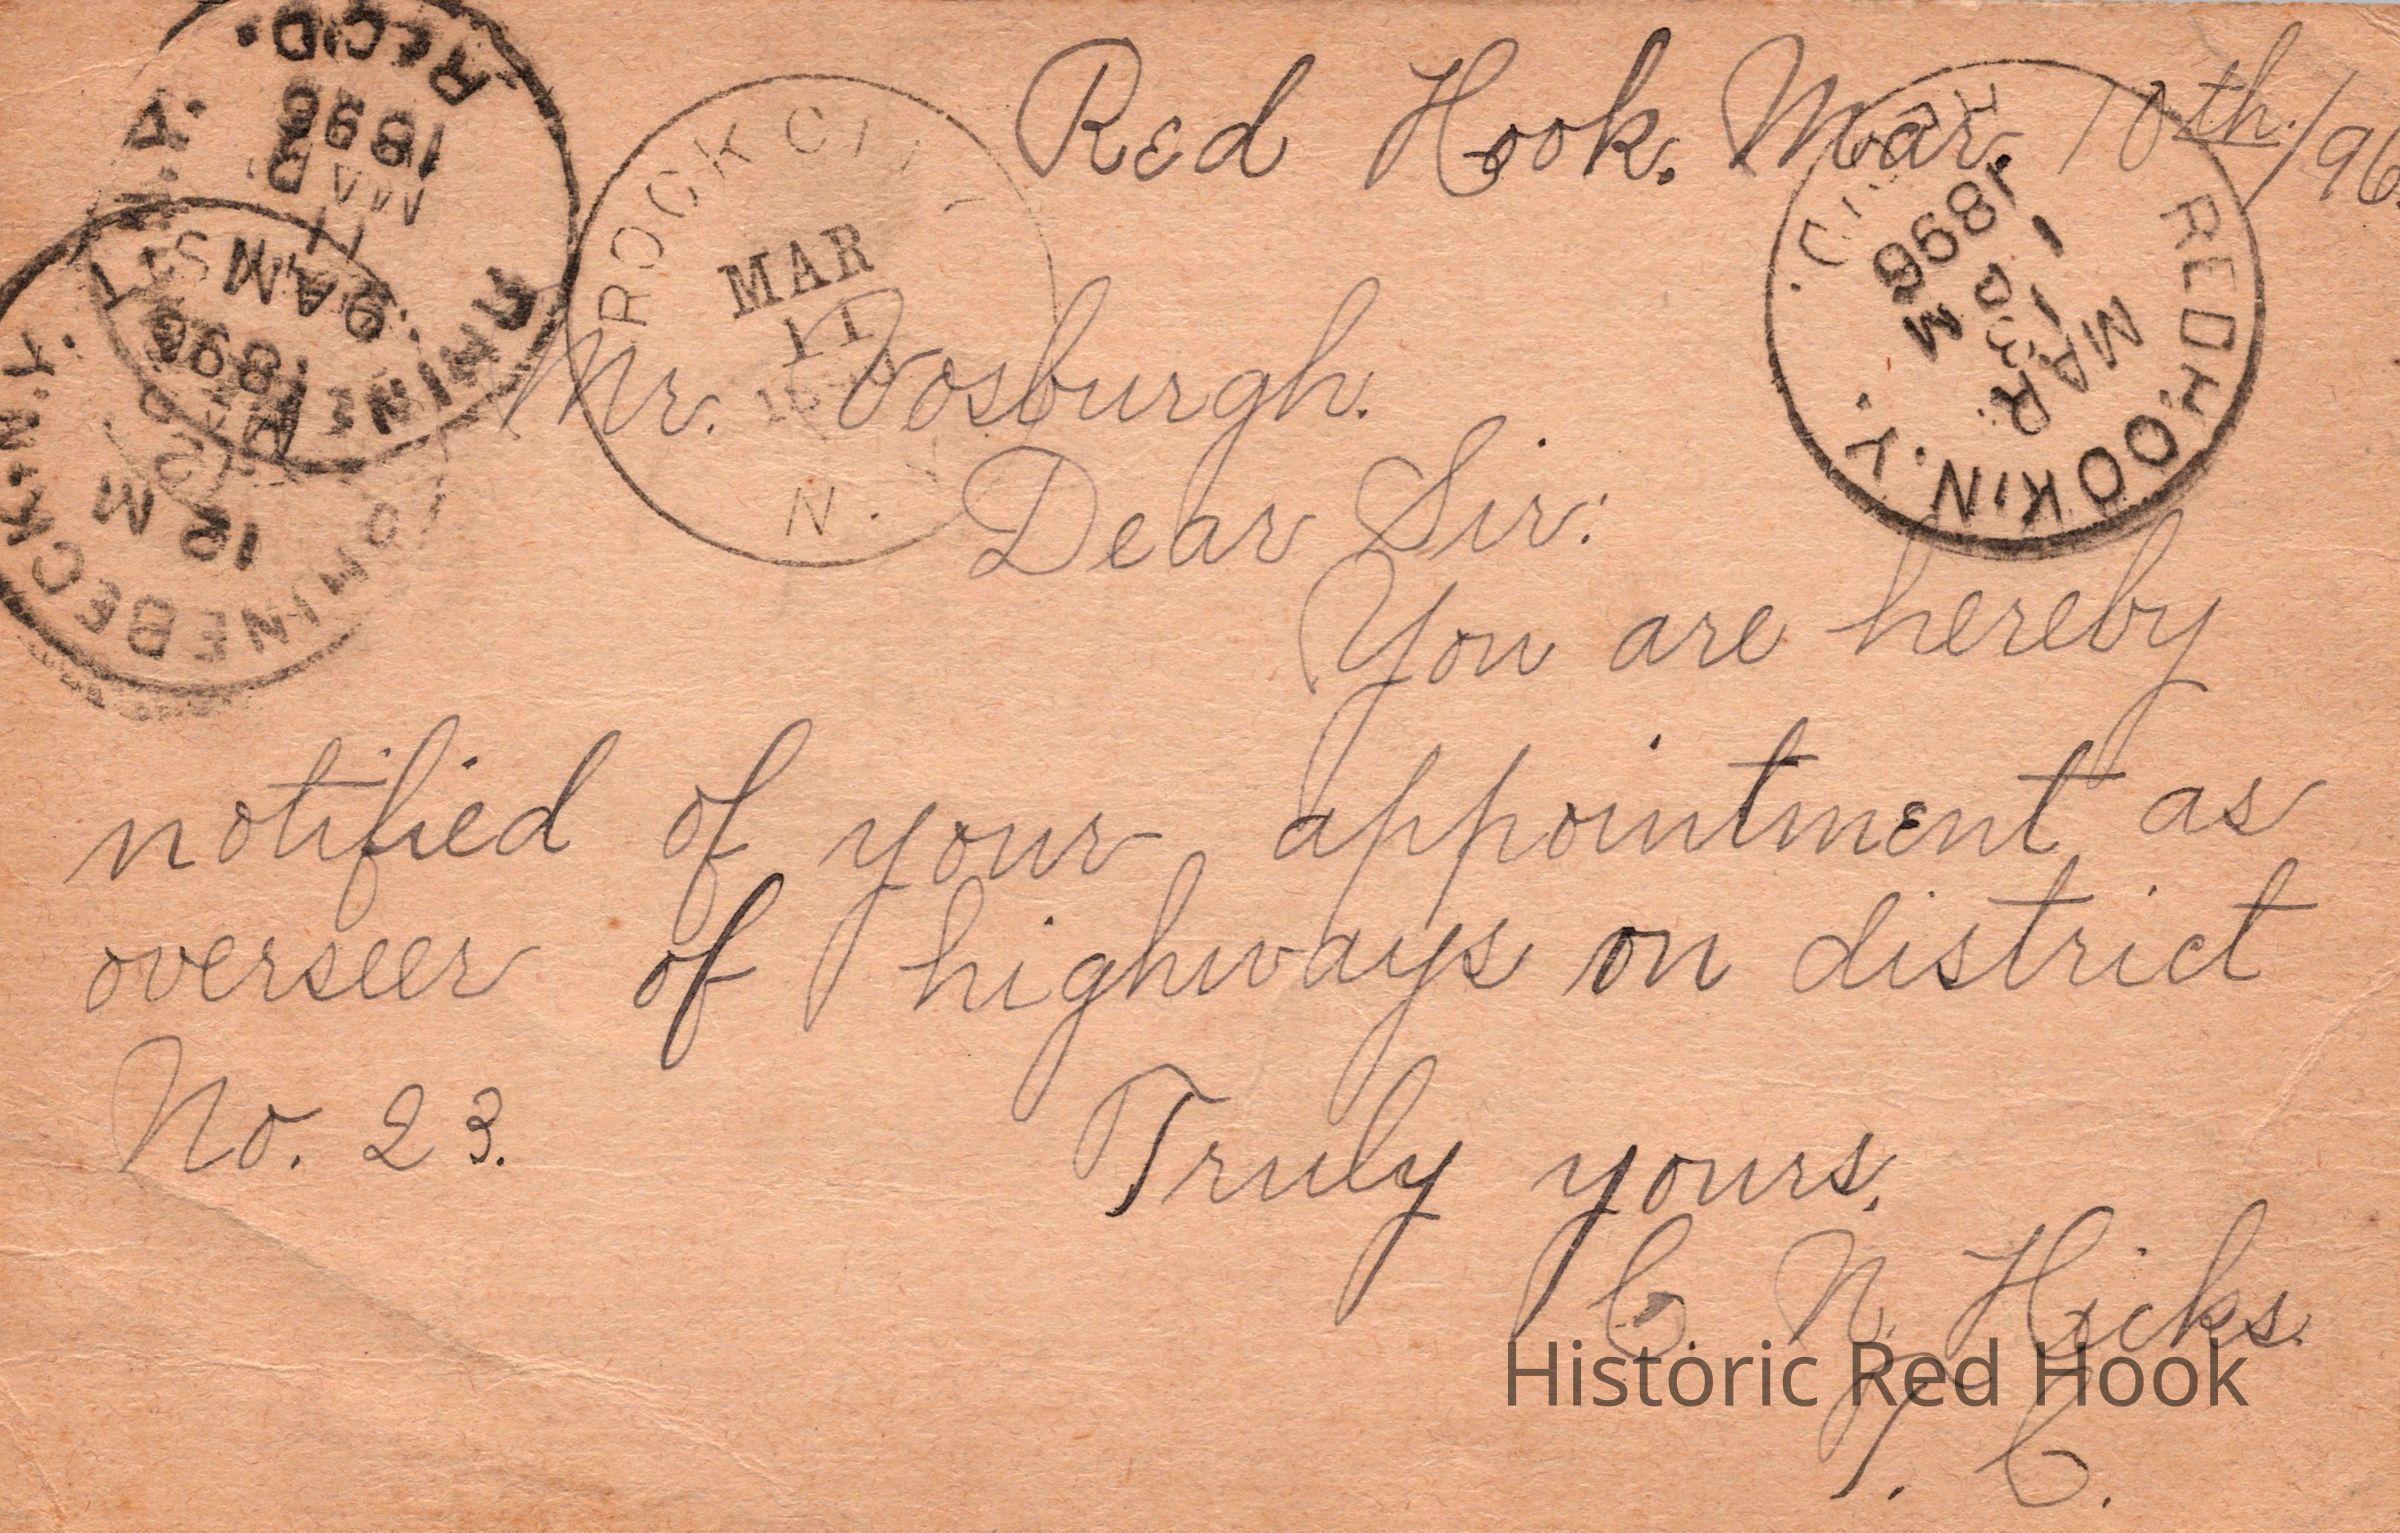 Red Hook. Mar. 10th/96.
REC'D.
1896
MAR
11
N.Y.
ROCK CITY
MAR
11
N.
RED HOOK N.Y.
MAR
10
1896
REC'D.
RED HOOK N.Y.
MAR
1
3 P M
9 AM
1896
RHINEBECK N.Y.
12 M
Mr. Vosburgh.
Dear Sir:
You are hereby
notified of your appointment as
overseer of highways on district
No. 23.
Truly yours,
C. N. Hicks.
T. C.
Historic Red Hook